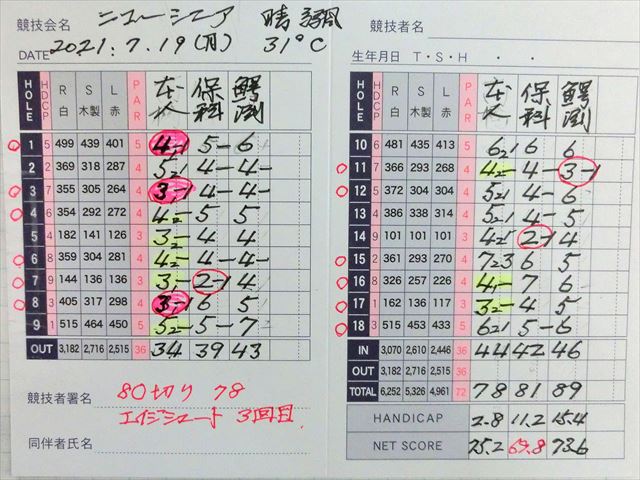 競技会名 ニューシニア 晴 弱風
DATE 2021.7.19(月) 31°C
HOLE HDCP R白 S木製 L赤 PAR 保科
1 5 499 439 401 5 4 5 6
2 369 318 287 4 5 4 4
3 7 355 305 264 4 3 4 4
4 6 354 292 272 4 4 5 5
5 4 182 141 126 3 3 4 4
6 8 359 304 281 4 4 4 4
7 9 144 136 136 3 3 2 4
8 3 405 317 298 4 3 6 5
9 1 515 464 450 5 5 5 7
OUT 3,182 2,716 2,515 36 34 39 43
競技者署名 80切り 78
エイジシュート 3回目
同伴者氏名
競技者名
生年月日 T・S・H ・ ・
HOLE HDCP R白 S木製 L赤 PAR 保科
10 6 481 435 413 5 6 6 6
11 7 366 293 268 4 4 4 3
12 5 372 304 304 4 5 4 6
13 4 386 338 314 4 5 4 5
14 9 101 101 103 3 4 2 4
15 2 361 293 270 4 7 6 5
16 8 326 257 226 4 4 7 6
17 1 162 136 117 3 3 4 5
18 3 515 453 433 5 6 5 6
IN 3,070 2,610 2,446 36 44 42 46
OUT 3,182 2,716 2,515 36
TOTAL 6,252 5,326 4,961 72 78 81 89
HANDICAP 2.8 11.2 15.4
NET SCORE 75.2 69.8 73.6